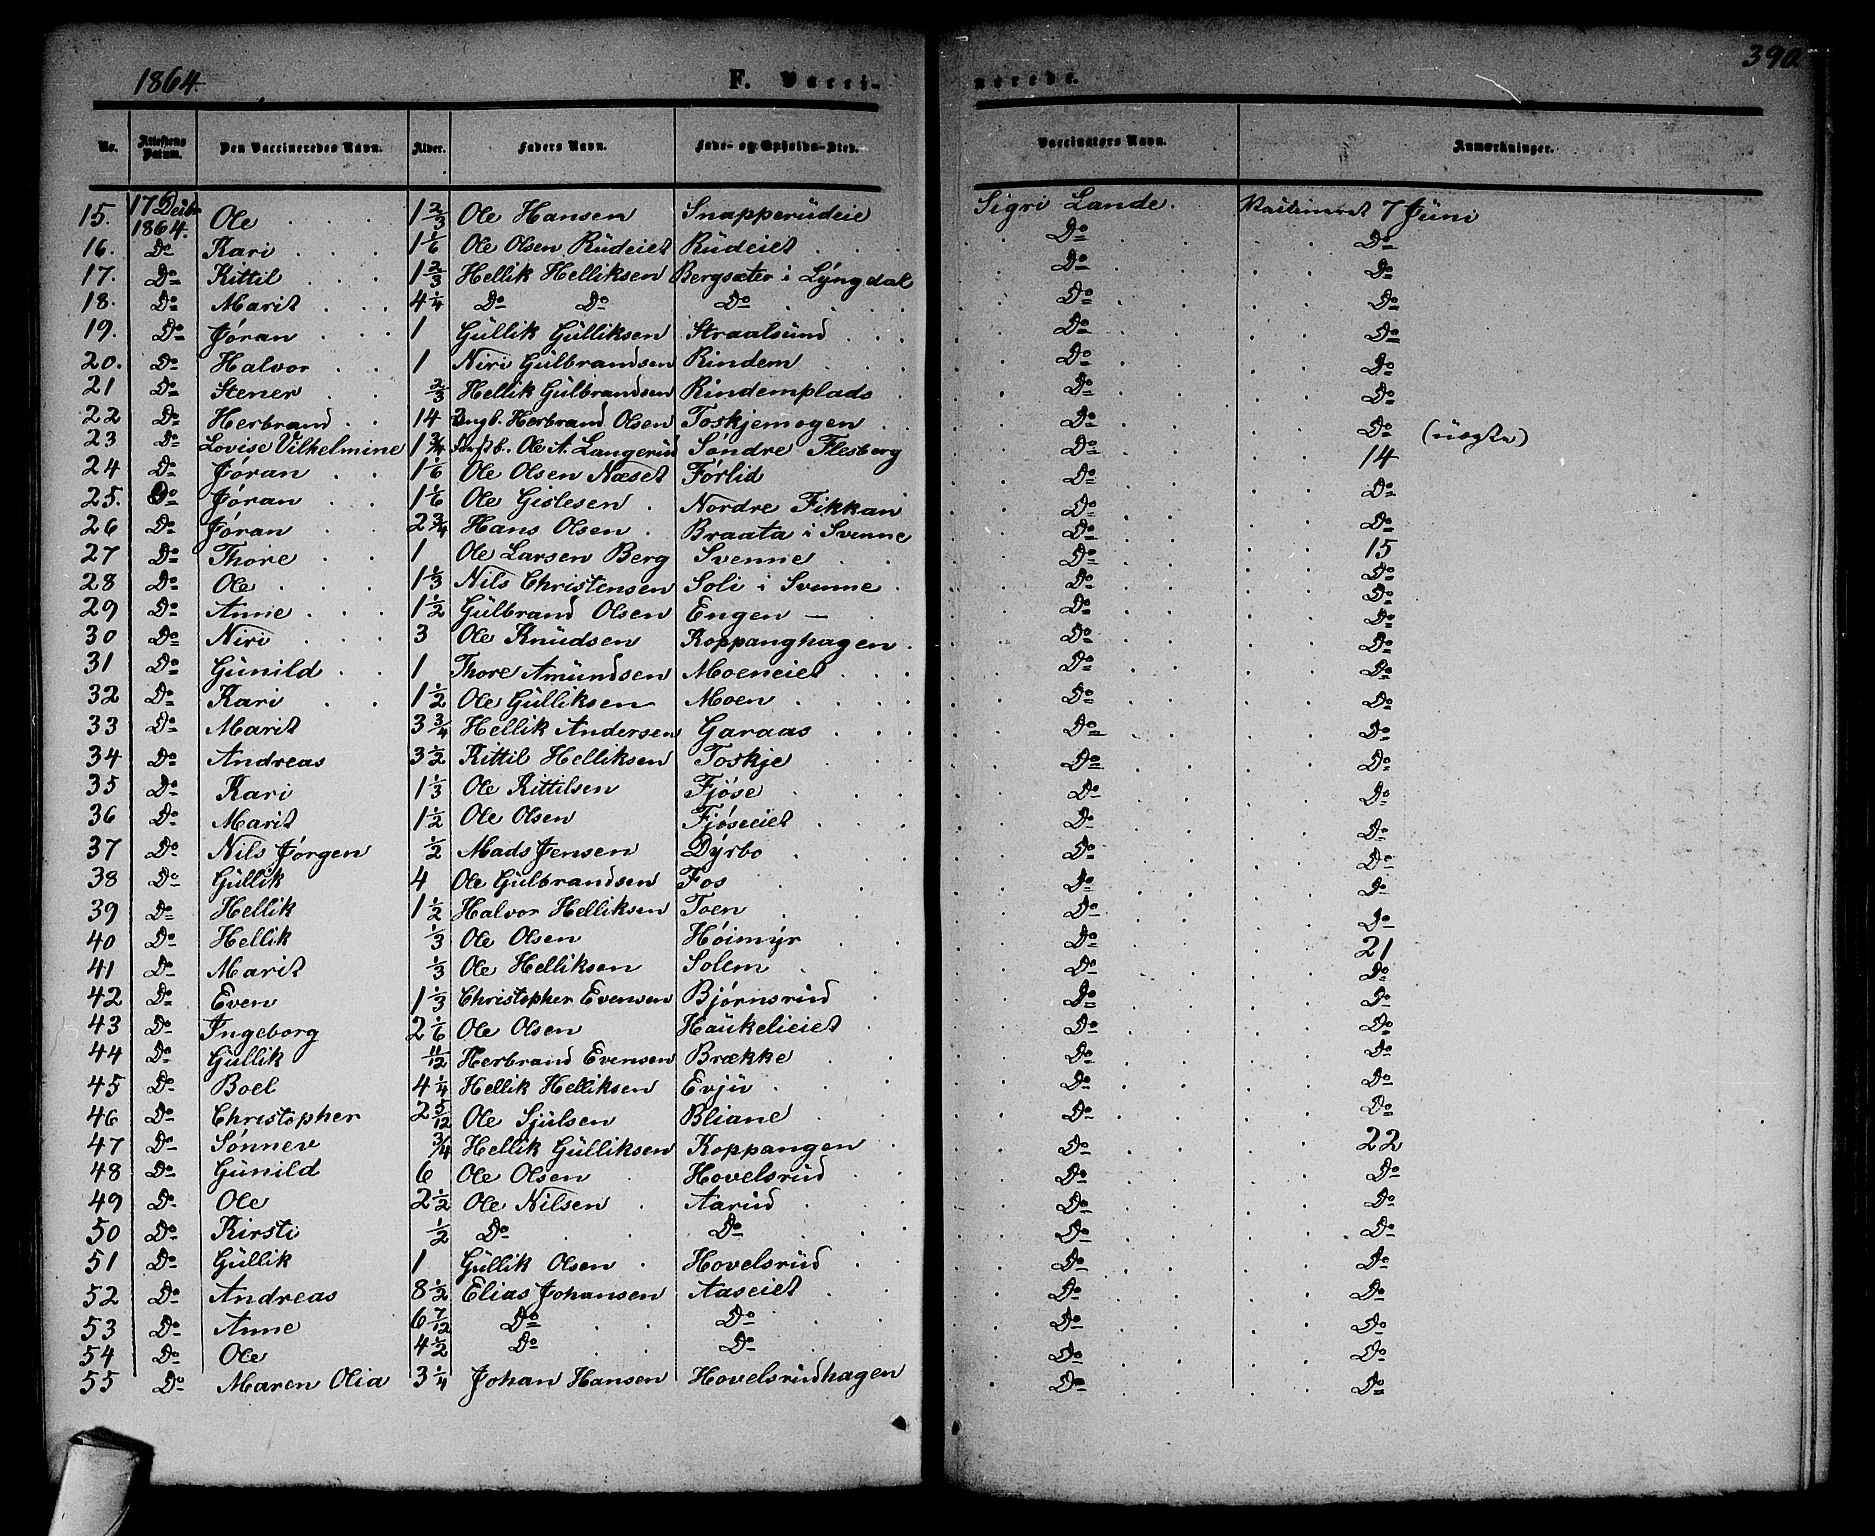 1864.
F. Vacci-
nerede.
390
No. Attestens Datum. Den Vaccineredes Navn. Alder. Faders Navn. Føde- og Opholds-Sted. Vaccinators Navn. Anmærkninger.
15. 17 Decbr 1864. Ole 1 2/3 Ole Hansen Snapperüdeie Sigri Lande. Vaccineret 7 Jüni
16. Do Kari 1 1/6 Ole Olsen Rüdeiet Rüdeiet Do Do
17. Do Kittil 1 2/3 Hellik Helliksen Bergsæter i Lÿngdal Do Do
18. Do Marit 4 1/4 Do Do Do Do Do
19. Do Jøran 1 Güllik Gülliksen Straalsünd Do Do
20. Do Halvor 1 Niri Gülbrandsen Rindem Do Do
21 Do Stener 2/3 Hellik Gülbrandsen Rindemplads Do Do
22 Do Herbrand 14 Ungk. Herbrand Olsen Toskjemogen Do Do (uægte)
23 Do Lovise Vilhelmine 1 3/4 Ole A. Langerüd Søndre Flesberg Do 14
24 Do Jøran 1 1/6 Ole Olsen Næset Førlid Do Do
25. Do Jøran 1 1/6 Ole Gislesen Nordre Fikkan Do Do
26 Do Jøran 2 3/4 Hans Olsen Braata i Svenne Do 15
27 Do Thore 1 Ole Larsen Berg Svenne Do Do
28 Do Ole 1 1/3 Nils Christensen Soli i Svenne Do Do
29 Do Anne 1 1/2 Gülbrand Olsen Engen — Do Do
30 Do Niri 3 Ole Knüdsen Koppanghagen Do Do
31 Do Günild 1 Thore Amündsen Moeneiet Do Do
32 Do Kari 1 1/2 Ole Gülliksen Moen Do Do
33 Do Marit 3 3/4 Hellik Andersen Garaas Do Do
34 Do Andreas 3 1/2 Kittil Helliksen Toskje Do Do
35 Do Kari 1 1/3 Ole Kittilsen Fjøse Do Do
36 Do Marit 1 1/2 Ole Olsen Fjøseiet Do Do
37 Do Nils Jørgen 1/2 Mads Jensen Dÿrbo Do Do
38 Do Güllik 4 Ole Gülbrandsen Fos Do Do
39 Do Hellik 1 1/2 Halvor Helliksen Toen Do Do
40 Do Hellik 1/3 Ole Olsen Høimÿr Do 21
41 Do Marit 1/3 Ole Helliksen Solem Do Do
42 Do Even 1 1/3 Christopher Evensen Bjørnsrüd Do Do
43 Do Ingeborg 2 1/6 Ole Olsen Haükelieiet Do Do
44 Do Güllik 11/12 Herbrand Evensen Brække Do Do
45 Do Boel 4 1/4 Hellik Helliksen Evjü Do Do
46 Do Christopher 2 5/12 Ole Sjülsen Bliane Do Do
47 Do Sønnev 3/4 Hellik Gülliksen Koppangen Do 22
48 Do Günild 6 Ole Olsen Hovelsrüd Do Do
49 Do Ole 2 1/2 Ole Nilsen Aarüd Do Do
50 Do Kirsti 1/2 Do Do Do Do
51 Do Güllik 1 Güllik Olsen Hovelsrüd Do Do
52 Do Andreas 8 1/2 Elias Johansen Aaseiet Do Do
53 Do Anne 6 7/12 Do Do Do Do
54 Do Ole 4 1/2 Do Do Do Do
55 Do Maren Olia 3 1/4 Johan Hansen Hovelsrüdhagen Do Do